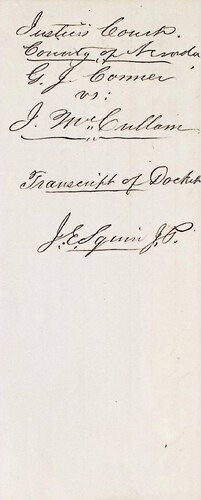 Justices Court.
County of Nevada
G. J. Conner
vs:
J. McCullam
Transcript of Docket
J. E. Squire J. P.